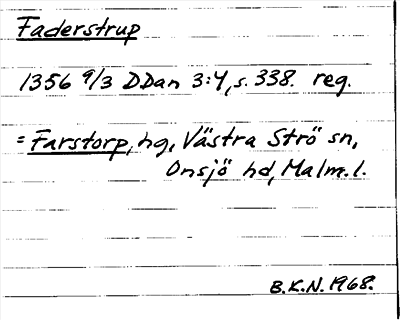 Faderstrup
1356 9/3 DDan 3:4, s. 338. reg.
= Farstorp, hg, Västra Strö sn,
Onsjö hd, Malm. l.
B.K.N. 1968.